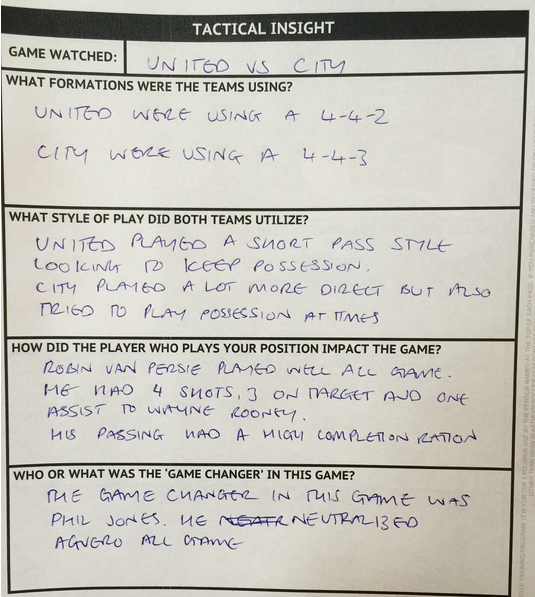 TACTICAL INSIGHT
GAME WATCHED: UNITED VS CITY
WHAT FORMATIONS WERE THE TEAMS USING?
UNITED WERE USING A 4-4-2
CITY WERE USING A 4-4-3
WHAT STYLE OF PLAY DID BOTH TEAMS UTILIZE?
UNITED PLAYED A SHORT PASS STYLE
LOOKING TO KEEP POSSESSION.
CITY PLAYED A LOT MORE DIRECT BUT ALSO
TRIED TO PLAY POSSESSION AT TIMES
HOW DID THE PLAYER WHO PLAYS YOUR POSITION IMPACT THE GAME?
ROBIN VAN PERSIE PLAYED WELL ALL GAME.
HE HAD 4 SHOTS, 3 ON TARGET AND ONE
ASSIST TO WAYNE ROONEY.
HIS PASSING HAD A HIGH COMPLETION RATION
WHO OR WHAT WAS THE 'GAME CHANGER' IN THIS GAME?
THE GAME CHANGER IN THIS GAME WAS
PHIL JONES. HE NEUTRALIZED
AGUERO ALL GAME